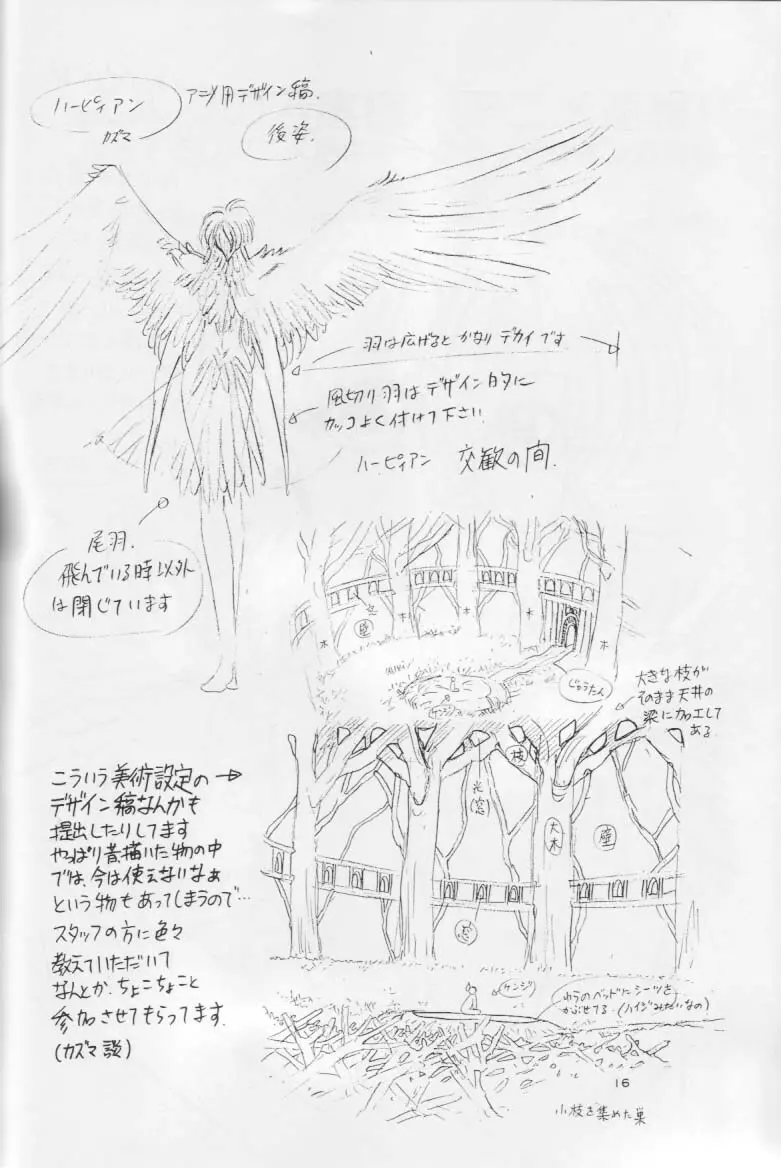 ハーピィアン
カズマ
アニメ用デザイン稿.
後姿.
羽は広げると かなり デカイ です
風切り羽はデザイン的に
カッコよく付けて下さい.
ハーピィアン 交歓の間.
尾羽.
飛んでいる時以外
は閉じています
窓
壁
木
木
木
木
じゅうたん
ケンジ
大きな枝が
そのまま天井の
梁に加工して
ある
枝
光
窓
大木
壁
窓
こういう美術設定の→
デザイン稿なんかも
提出したりしてます
やっぱり昔描いた物の中
では、今は使えないなぁ
という物もあってしまうので…
スタッフの方に色々
教えていただいて
なんとか、ちょこちょこと
参加させてもらってます.
(カズマ談)
ケンジ
わらのベッドにシーツを
かぶせてる.(ハイジみたいなの)
16
小枝を集めた巣